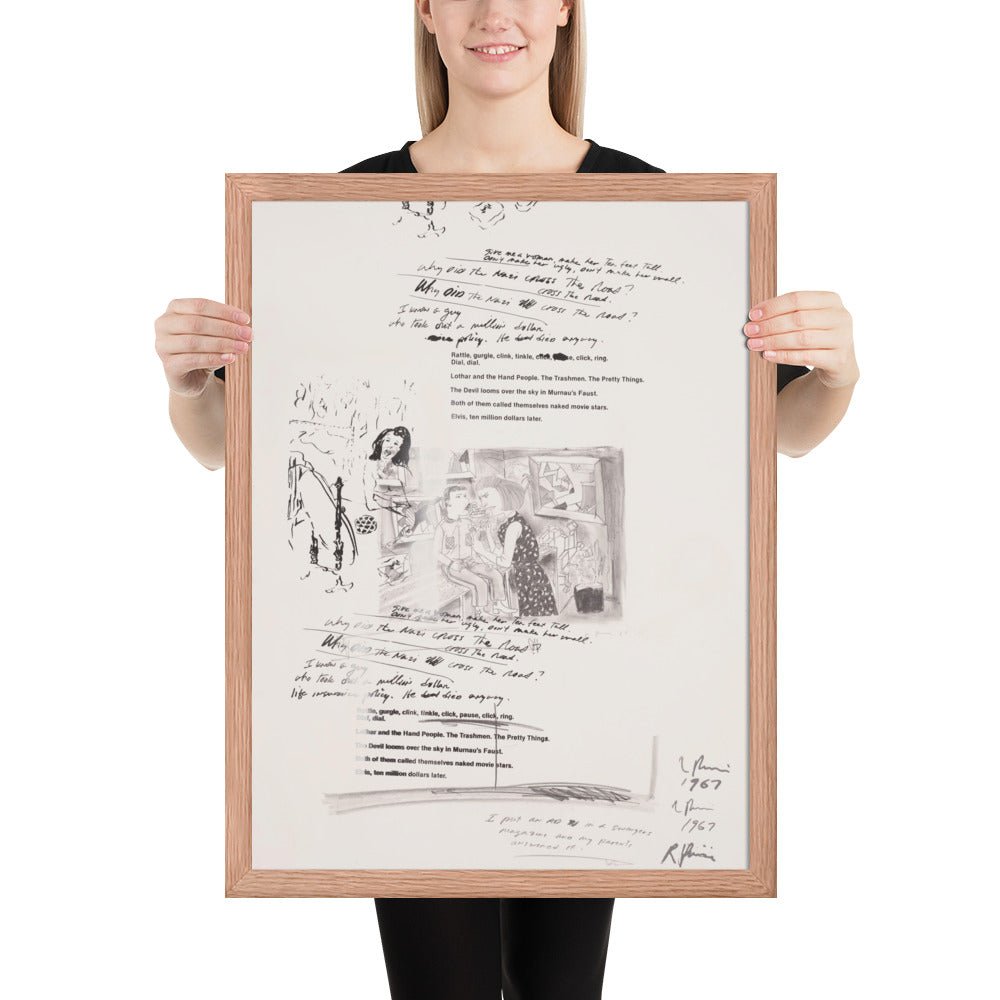 Give me a woman, make her Ten feet Tall.
Don't make her ugly, don't make her small.
Why Did the Nazi CROSS The Road?
CROSS The Road.
Why DID The Nazi CROSS The Road?
I know a guy
who took out a million dollar
policy. He died anyway.
Rattle, gurgle, clink, tinkle, click, pause, click, ring.
Dial, dial.
Lothar and the Hand People. The Trashmen. The Pretty Things.
The Devil looms over the sky in Murnau's Faust.
Both of them called themselves naked movie stars.
Elvis, ten million dollars later.
Give me a woman, make her Ten feet Tall.
Don't make her ugly, don't make her small.
Why DID the Nazi CROSS The Road?
CROSS The Road.
Why DID The Nazi CROSS The Road?
I know a guy
who took out a million dollar
life insurance policy. He died anyway.
Rattle, gurgle, clink, tinkle, click, pause, click, ring.
Dial, dial.
Lothar and the Hand People. The Trashmen. The Pretty Things.
The Devil looms over the sky in Murnau's Faust.
Both of them called themselves naked movie stars.
Elvis, ten million dollars later.
1967
1967
I put an AD in a swingers
magazine and my parents
answered it.